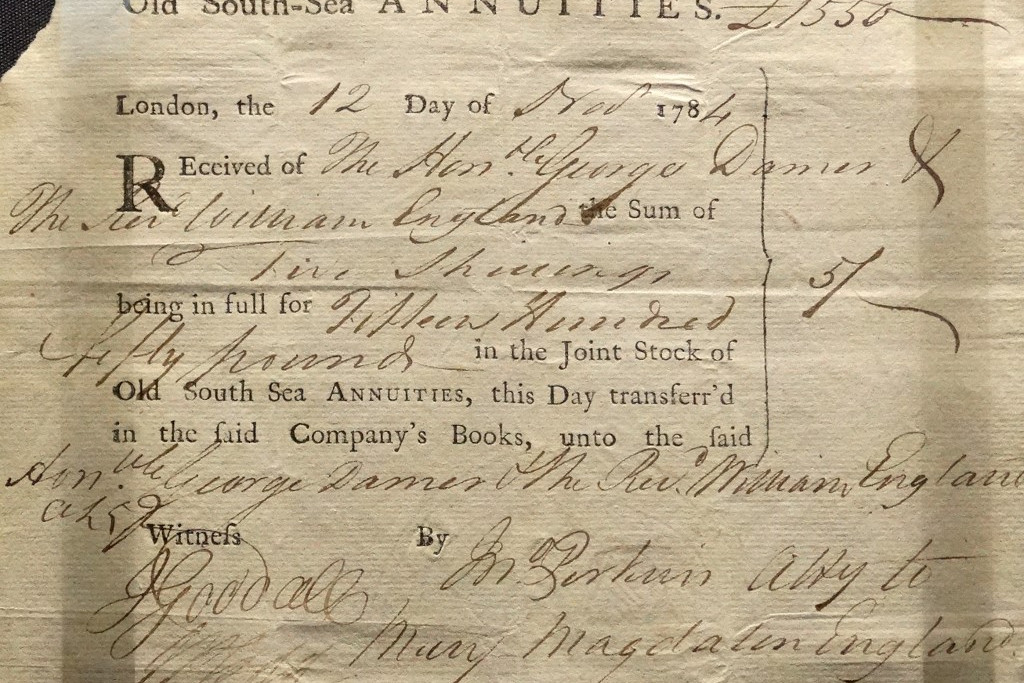 Old South-Sea ANNUITIES. £1550
London, the 12 Day of Nov 1784
REceived of The Honble George Damer &
The Revd William England the Sum of
Five Shillings 5/
being in full for Fifteen Hundred
& fifty pounds in the Joint Stock of
Old South Sea ANNUITIES, this Day transferr'd
in the ſaid Company's Books, unto the ſaid
Honble George Damer & the Revd. William England
Witneſs By Jno Perkin Atty to
J Goodall
Mary Magdalen England